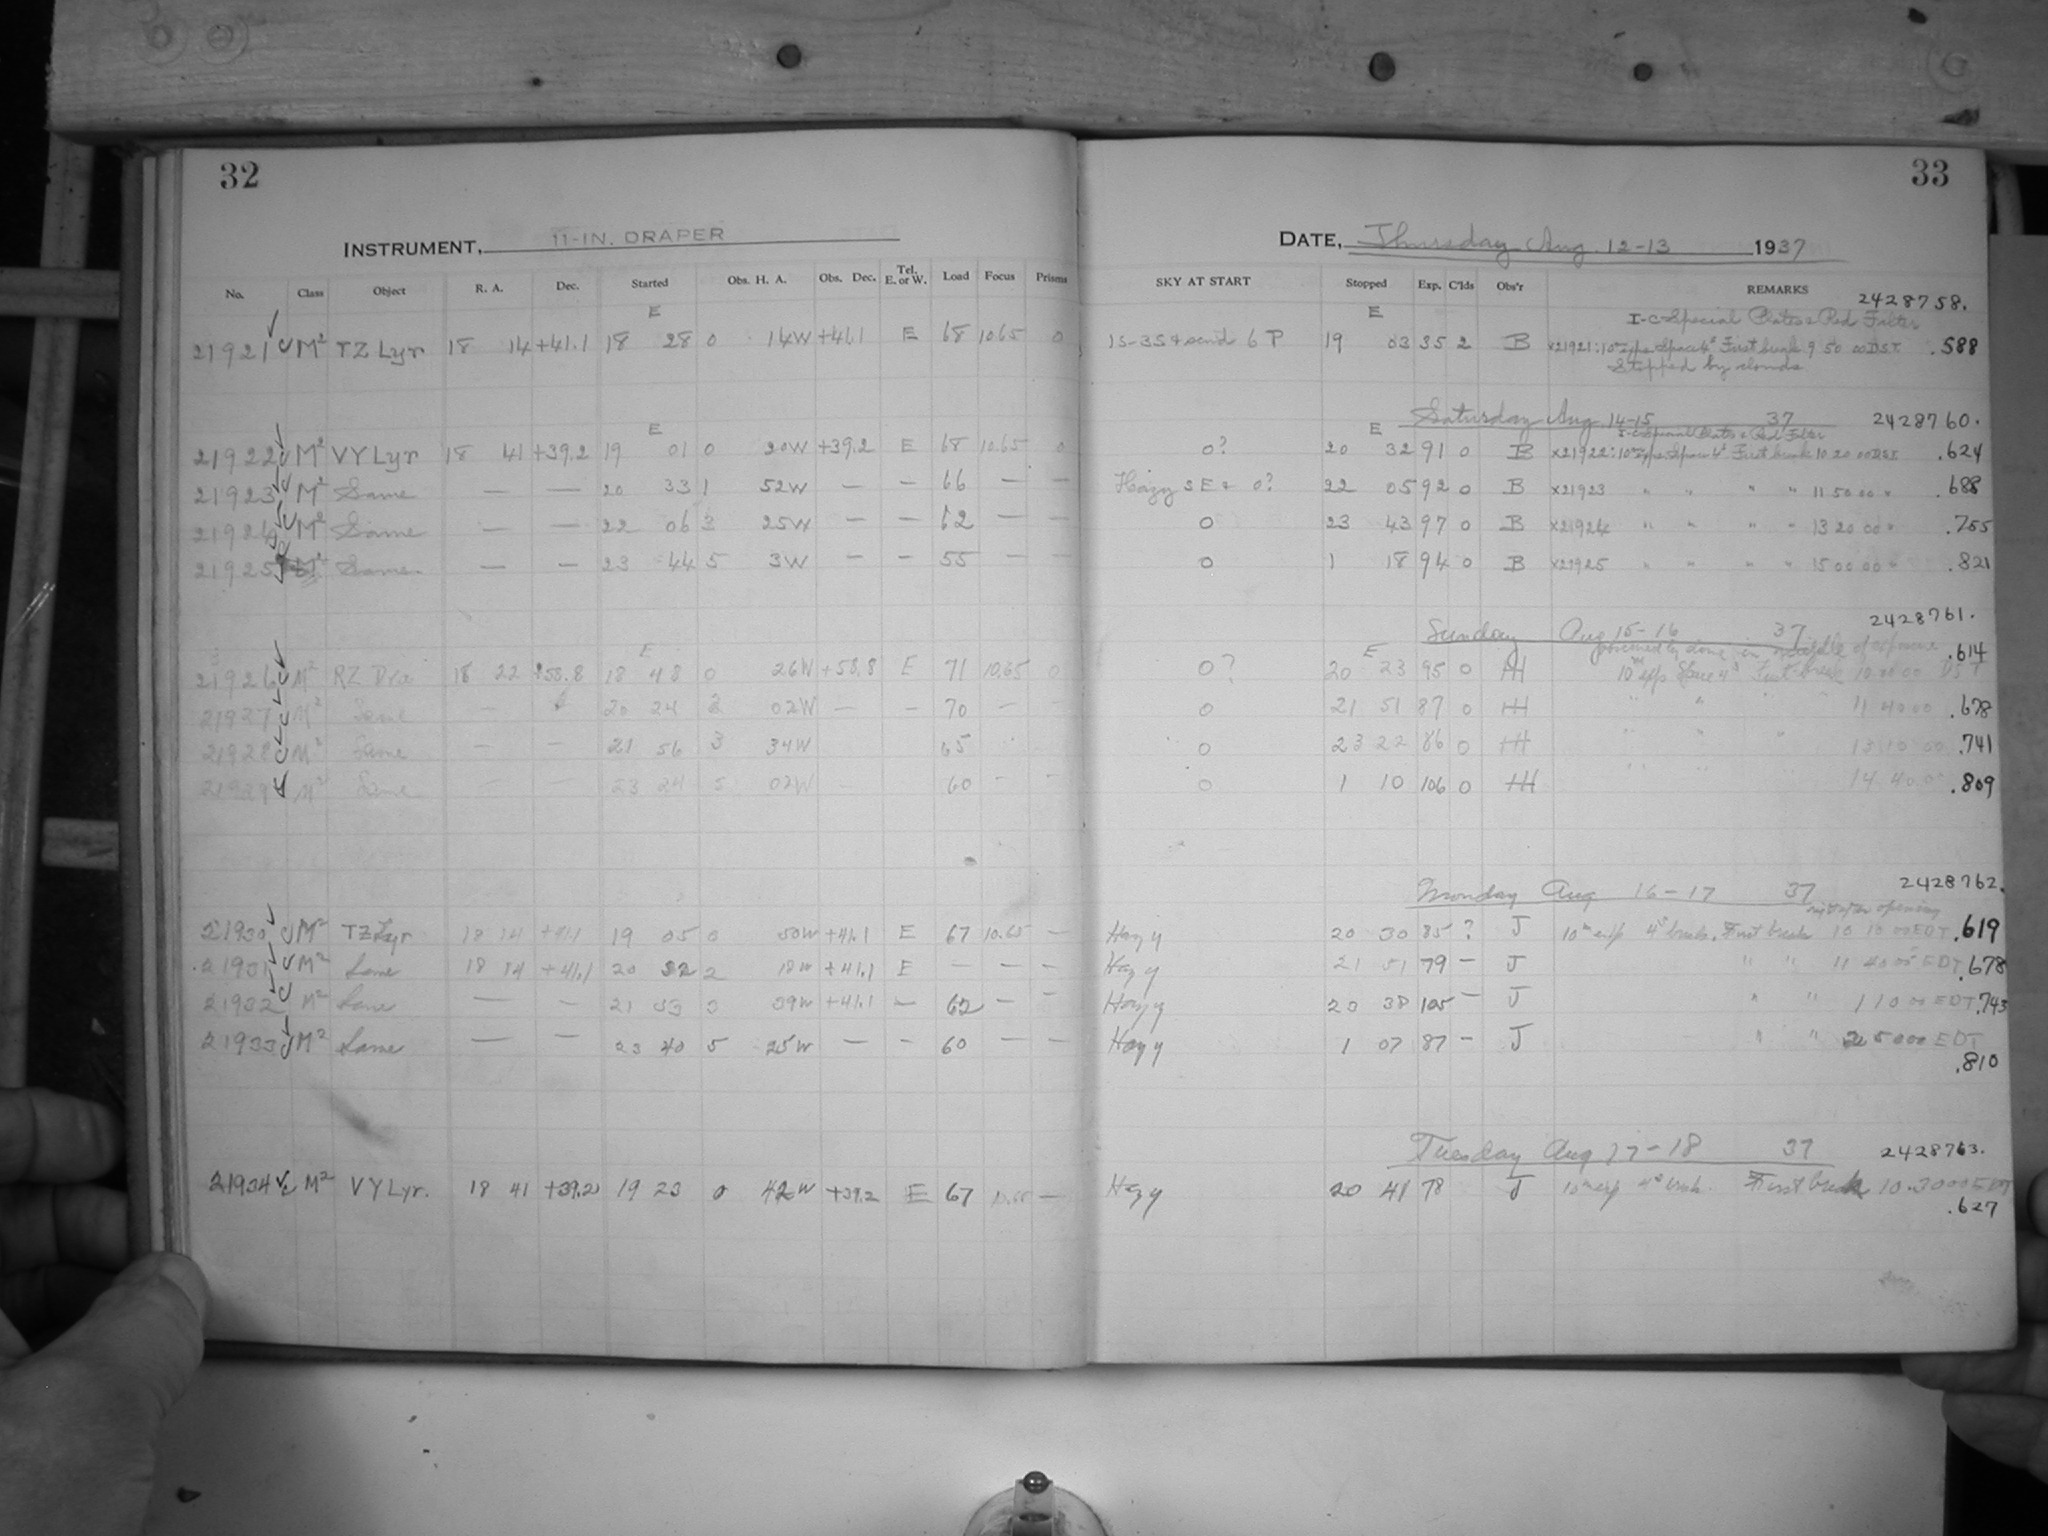 32
INSTRUMENT, 11-IN. DRAPER
No. Class Object R. A. Dec. Started Obs. H. A. Obs. Dec. Tel. E. or W. Load Focus Prisms
E
21921 C M² TZ Lyr 18 14 +41.1 18 28 0 14W +41.1 E 68 10.65 0
E
21922 C M² VY Lyr 18 41 +39.2 19 01 0 20W +39.2 E 68 10.65 0
21923 C M² Same — — 20 33 1 52W — — 66 — —
21924 C M² Same — — 22 06 3 25W — — 62 — —
21925 Same — — 23 44 5 3W — — 55 — —
E
21926 C M² RZ Dra 18 22 +58.8 18 48 0 26W +58.8 E 71 10.65 0
21927 C M² Same — 20 24 2 02W — — 70 — —
21928 C M² Same — — 21 56 3 34W 65
21929 C M² Same — — 23 24 5 02W — 60 — —
21930 C M² TZ Lyr 18 14 +41.1 19 05 0 50W +41.1 E 67 10.65 —
21931 C M² Same 18 14 +41.1 20 32 2 18W +41.1 E — — —
21932 C M² Same — — 21 53 3 39W +41.1 — 62 — —
21933 C M² Same — — 23 40 5 25W — — 60 — —
21934 C M² VY Lyr. 18 41 +39.2 19 23 0 42W +39.2 E 67 —
33
DATE, Thursday Aug. 12-13 1937
SKY AT START Stopped Exp. C'lds Obs'r REMARKS
2428758.
I-C Special Plates & Red Filter
E
1S-3S & send 6 P 19 03 35 2 B x21921: 10m exp. Space 4s First break 9 50 00 DST .588
Stopped by clouds
Saturday Aug. 14-15 37 2428760.
I-C Special Plates & Red Filter
E
0? 20 32 91 0 B x21922: 10m exp. Space 4s First break 10 20 00 DST .624
Hazy S E & 0? 22 05 92 0 B x21923 " " " " 11 50 00 " .688
0 23 43 97 0 B x21924 " " " " 13 20 00 " .755
0 1 18 94 0 B x21925 " " " " 15 00 00 " .821
2428761.
Sunday Aug 15-16 37
in middle of exposure
E
0? 20 23 95 0 HH 10m exp Space 4s First break 10 10 00 DST .614
0 21 51 87 0 HH " " " 11 40 00 .678
0 23 22 86 0 HH " " " 13 10 00 .741
0 1 10 106 0 HH 14 40 00 .809
Monday Aug 16-17 37 2428762.
opening
Hazy 20 30 85 ? J 10m exp 4s break. First break 10 10 00 EDT .619
Hazy 21 51 79 — J " " 11 40 00 EDT .678
Hazy 23 38 105 — J " " 1 10 00 EDT .743
Hazy 1 07 87 — J " " 2 50 00 EDT
.810
Tuesday Aug 17-18 37 2428763.
Hazy 20 41 78 J 10m exp 4s First break 10.30 00 EDT
.627